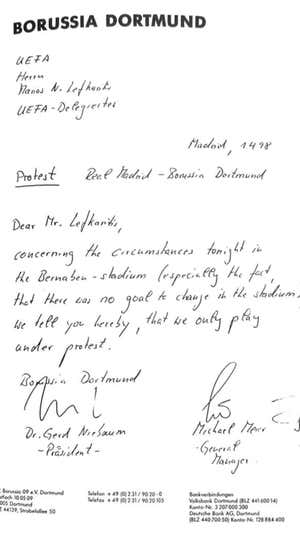 BORUSSIA DORTMUND
UEFA
Herrn
Marios N. Lefkaritis
UEFA-Delegierter
Madrid, 1.4.98
Protest Real Madrid - Borussia Dortmund
Dear Mr. Lefkaritis,
concerning the circumstances tonight in
the Bernabeu-stadium (especially the fact,
that there was no goal to change in the stadium)
we tell you hereby, that we only play
under protest.
Borussia Dortmund
Dr. Gerd Niebaum
-Präsident-
Michael Meier
-General
Manager-
Borussia 09 e.V. Dortmund
44139, Strobelallee 50
Telefon + 49 (0) 2 31 / 90 20 - 0
Telefax + 49 (0) 2 31 / 90 20 105
Bankverbindungen
Volksbank Dortmund (BLZ 441 600 14)
Konto-Nr. 3 207 000 300
Deutsche Bank AG, Dortmund
(BLZ 440 700 50) Konto-Nr. 128 884 400